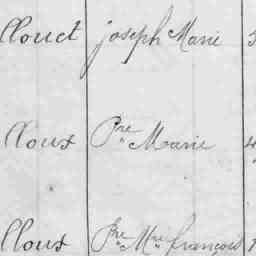 llouet joseph Marie
lloux Pre Marie 4
lloux Pre Mie françois